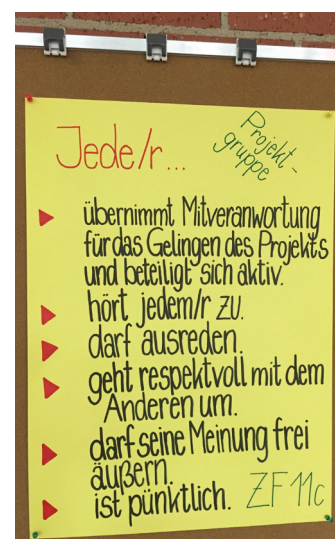 Jede/r...
Projekt-
gruppe
übernimmt Mitveranwortung
für das Gelingen des Projekts
und beteiligt sich aktiv.
hört jedem/r zu.
darf ausreden.
geht respektvoll mit dem
Anderen um.
darf seine Meinung frei
äußern.
ist pünktlich.
ZF 11c